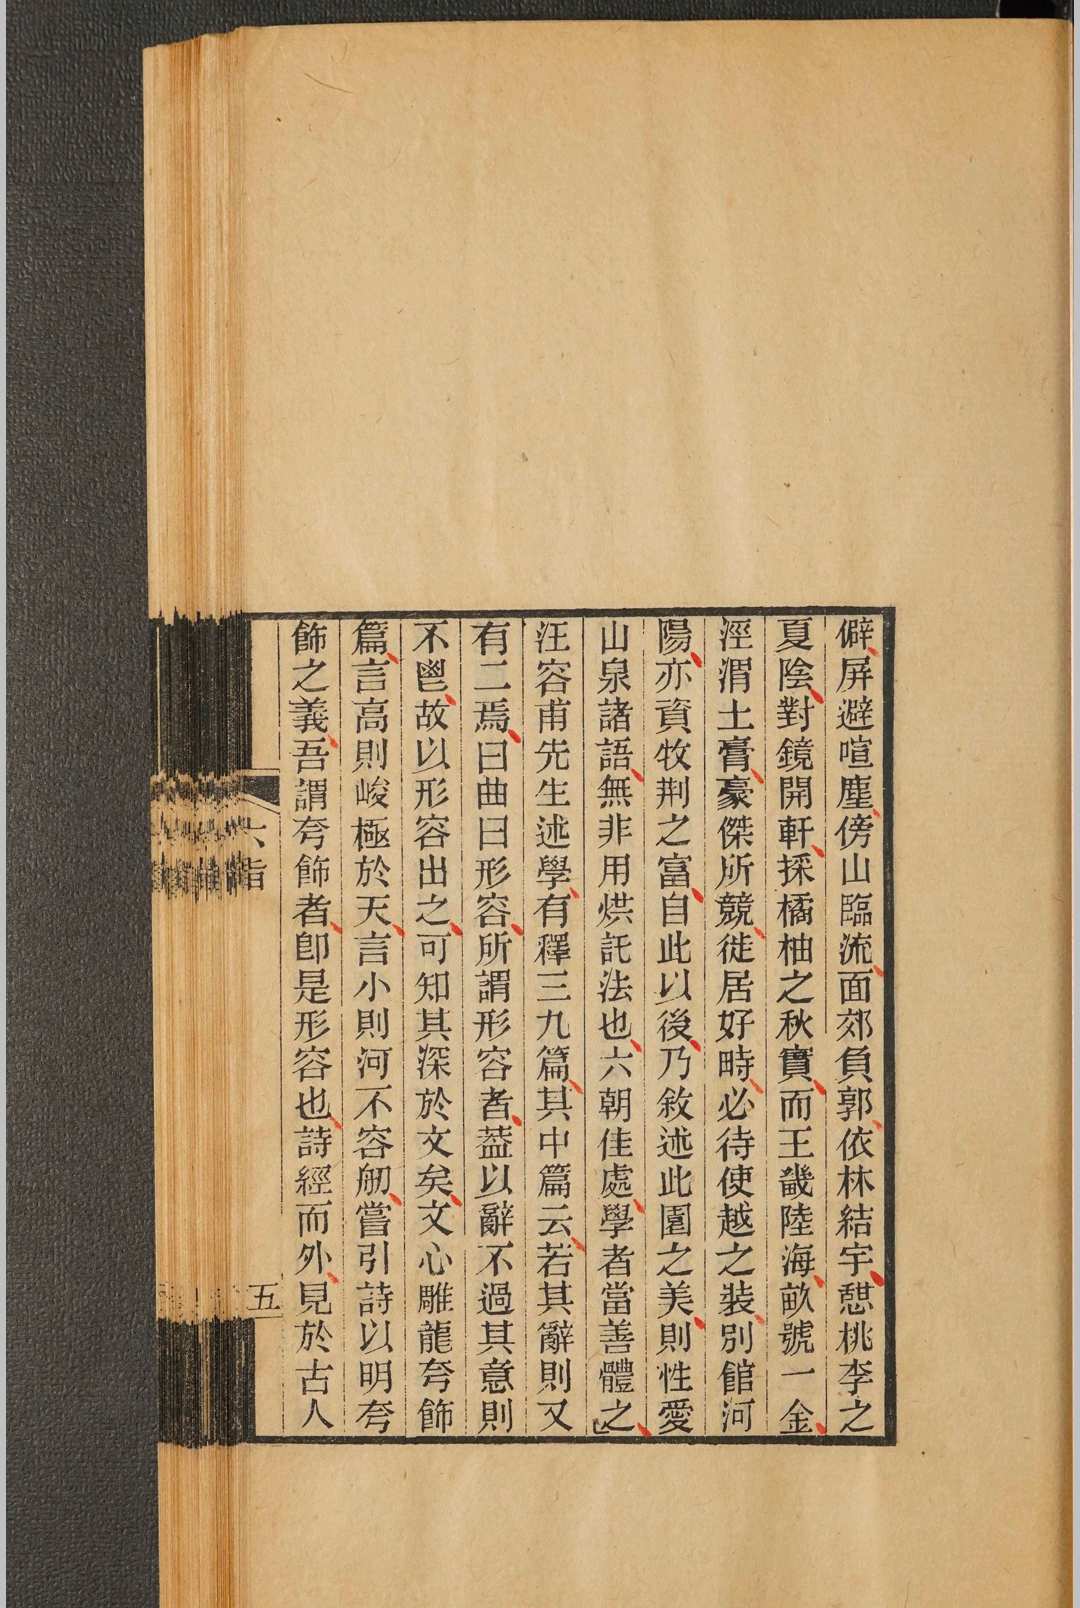 僻屏避喧塵傍山臨流面郊負郭依林結宇憇桃李之
夏陰對鏡開軒採橘柚之秋實而王畿陸海畝號一金
涇渭土膏豪傑所競徙居好畤必待使越之裝別館河
陽亦資牧荆之富自此以後乃敘述此園之美則性愛
山泉諸語無非用烘託法也六朝佳處學者當善體之
汪容甫先生述學有釋三九篇其中篇云若其辭則又
有二焉曰曲曰形容所謂形容者葢以辭不過其意則
不鬯故以形容出之可知其深於文矣文心雕龍夸飾
篇言高則峻極於天言小則河不容舠嘗引詩以明夸
飾之義吾謂夸飾者卽是形容也詩經而外見於古人
六指
五